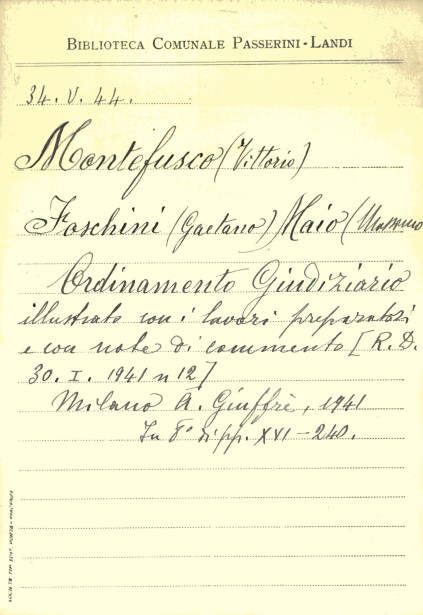 BIBLIOTECA COMUNALE PASSERINI-LANDI
34. V. 44.
Montefusco (Vittorio)
Foschini (Gaetano) Maio (Massimo
Ordinamento Giudiziario
illustrato con i lavori preparatori
e con note di commento [R. D.
30. I. 1941 n 12]
Milano A. Giuffrè, 1941
In 8° di pp. XVI-240.